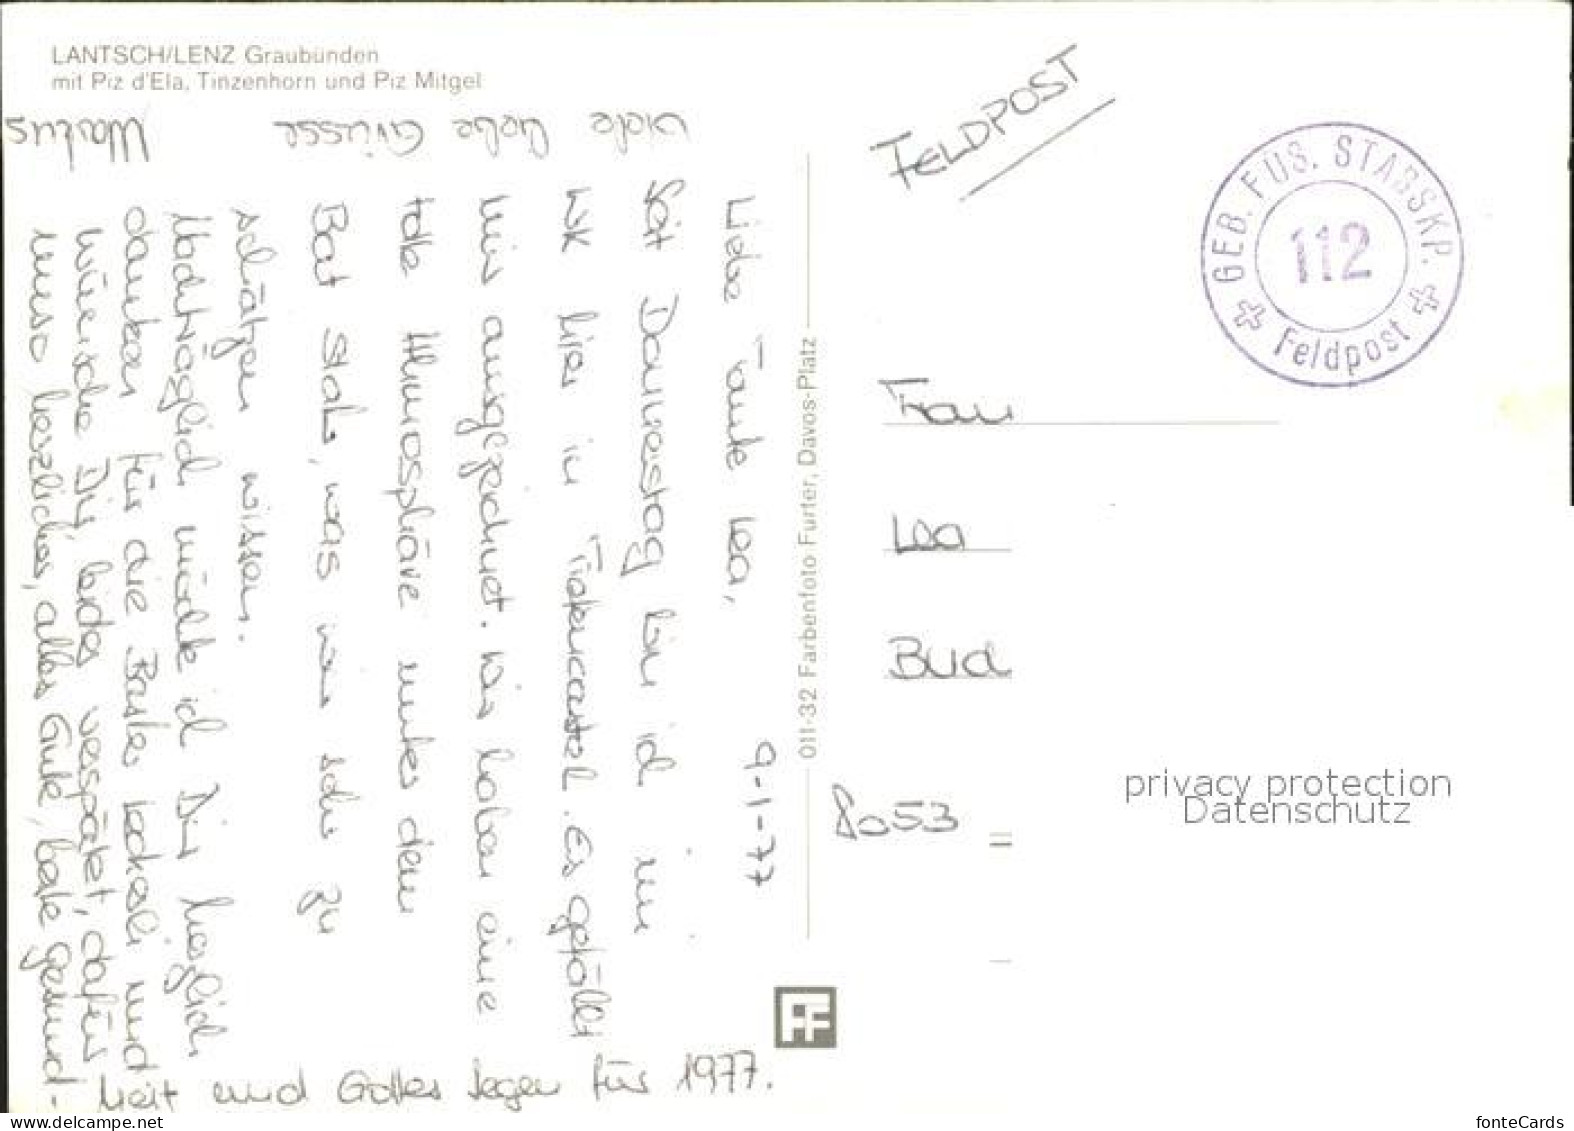 LANTSCH/LENZ Graubünden
mit Piz d'Ela, Tinzenhorn und Piz Mitgel
9-1-77
Liebe Tante Lea,
Seit Donnerstag bin ich im
WK hier in Tiefencastel. Es gefällt
mir ausgezeichnet. Wir haben eine
tolle Atmosphäre unter dem
Bat Stab, was wir sehr zu
schätzen wissen.
Nachträglich möchte ich Dir herzlich
danken für die Basler Leckerli und
wünsche Dir, leider verspätet, dafür
umso herzlicher, alles Gute, beste Gesund-
heit und Gottes Segen für 1977.
Viele liebe Grüsse
Markus
011-32 Farbenfoto Furter, Davos-Platz
FF
FELDPOST
GEB. FÜS. STABSKP.
112
Feldpost
Frau
Lea
8053
privacy protection
Datenschutz
www.delcampe.net
fonteCards